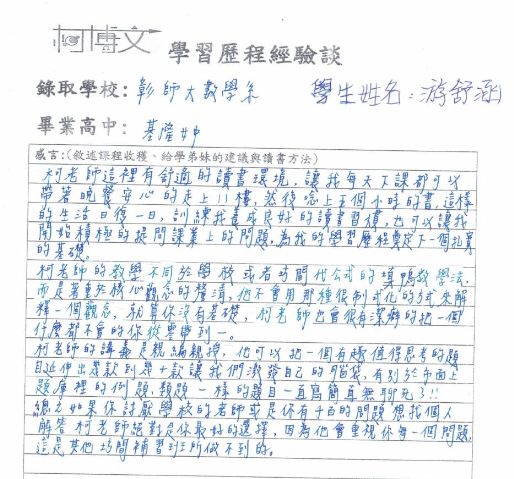 柯博文
學習歷程經驗談
錄取學校：彰師大數學系
學生姓名：游舒涵
畢業高中：基隆女中
感言：(敘述課程收穫、給學弟妹的建議與讀書方法)
柯老師這裡有舒適的讀書環境，讓我每天下課都可以
帶著晚餐安心的走上11樓，然後唸上五個小時的書，這樣
的生活日復一日，訓練我養成良好的讀書習慣，也可以讓我
開始積極的提問課業上的問題，為我的學習歷程奠定了一個扎實
的基礎。
柯老師的教學不同於學校或者坊間代公式的填鴨教學法，
而是著重於核心觀念的釐清，他不會用那種很制式化的方式來解
釋一個觀念，就算你沒有基礎，柯老師也會很有深解的把一個
什麼都不會的你從零變到一。
柯老師的講義是親編親授，他可以把一個有趣值得思考的題
目延伸出憑款到第十款讓我們激發自己的腦袋，有別於市面上
題庫裡的例題，類題一樣的題目一直寫簡直無聊死了!!
總之如果你討厭學校的老師或是你有千百的問題想找個人
解答柯老師絕對是你最好的選擇，因為他會重視你每一個問題，
這是其他坊間補習班所做不到的。